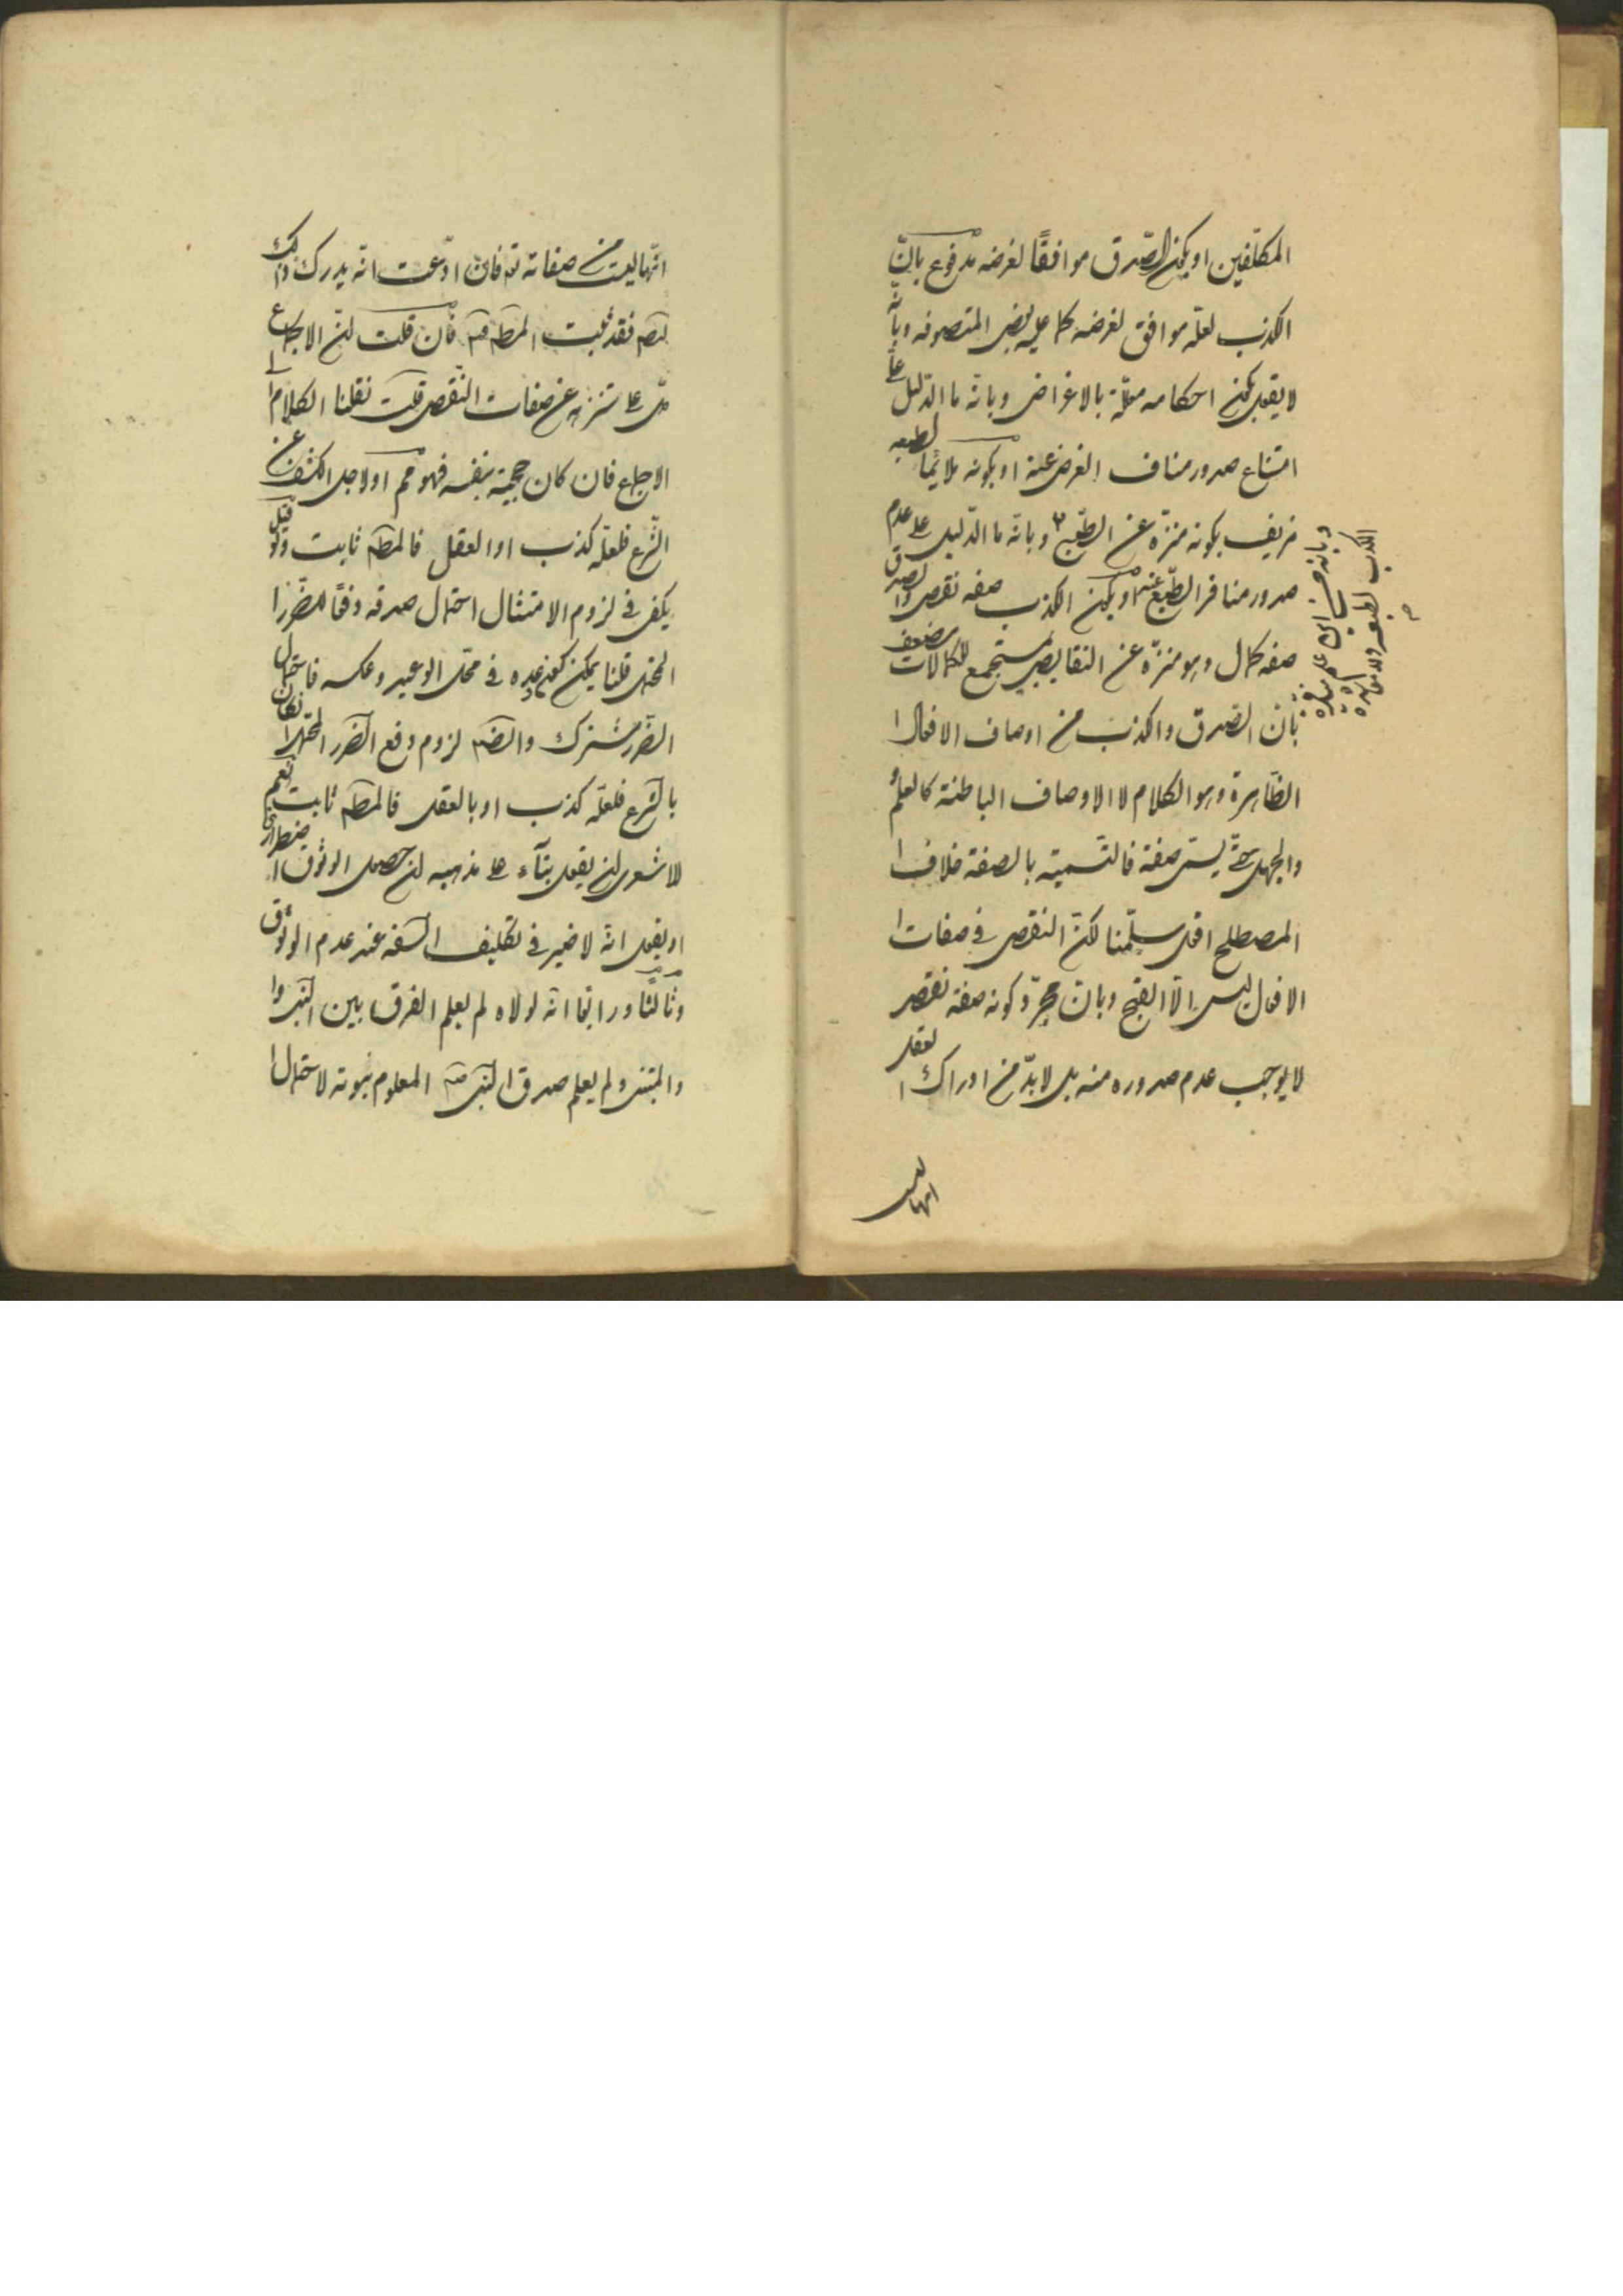 المكلّفين او يكون الصّدق موافقًا لغرضه مدفوع بانّ
الكذب لعلّه موافق لغرضه كما عليه بعض المتصوفه وبانّه
لا يقول بكون احكامه معلّلة بالاغراض وبانّه ما الدّليل على
امتناع صدور مناف الغرض عنه او بكونه ملايمًا لطبعه
مزيف بكونه منزّه عن الطبع وبانّه ما الدّليل على عدم
صدور منافر الطّبع عنه او بكون الكذب صفه نقص والصدق
صفه كمال وهو منزّه عن النقايص مستجمع للكمالات يضعف
بأنّ الصّدق والكذب من اوصاف الافعال
الظّاهرة وهو الكلام لا الاوصاف الباطنة كالعلم
والجهل حتّى يسمّى صفة فالتسمية بالصفة خلاف
المصطلح اقول سلّمنا لكنّ النقص في صفات
الافعال ليس الّا القبح وبانّ مجرّد كونه صفة نقص
لا يوجب عدم صدوره منه بل لا بدّ من ادراك العقل
وبانه
الكذب لطبعه
انها ليست
انّها ليست من صفاته تع فان ادّعيت انّه يدرك ذلك
فقد ثبت المط فان قلت انّ الاجماع
دلّ على تنزهه عن صفات النّقص قلت نقلنا الكلام الى
الاجماع فان كان حجية بنفسه فهو مم او لاجل الكشف عن
الشّرع فلعلّه كذب او العقل فالمط ثابت ولو قيل
يكفى في لزوم الامتثال احتمال صدقه دفعًا للضّرر
المحتمل قلنا يمكن كون وعده في محّل الوعيد وعكسه فاحتمال
الضّرر مشترك وايضا لزوم دفع الضّرر المحتمل ان كان
بالشّرع فلعلّه كذب او بالعقل فالمط ثابت نعم
للاشعرى ان يقول بنآء على مذهبه ان حصول الوثوق اضطرارى
او يقول انّه لا ضير في تكليف السّفه عند عدم الوثوق
وثالثًا ورابعًا انّه لولاه لم يعلم الفرق بين النّبى و
المتنبى ولم يعلم صدق النّبى المعلوم نبوته لاحتمال